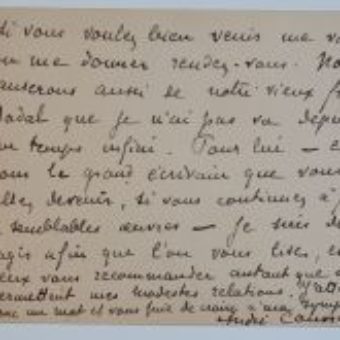 si vous voulez bien venir me vo
ou me donner rendez-vous. No
causerons aussi de notre vieux
Nadal que je n'ai pas vu depu
un temps infini. Pour lui — e
pour le grand écrivain que vous
allez devenir, si vous continuez à
semblables œuvres — je suis
agir afin que l'on vous lise, e
eux vous recommander autant que
permettent mes modestes relations. J'att
un mot et vous prie de croire à ma symp
André